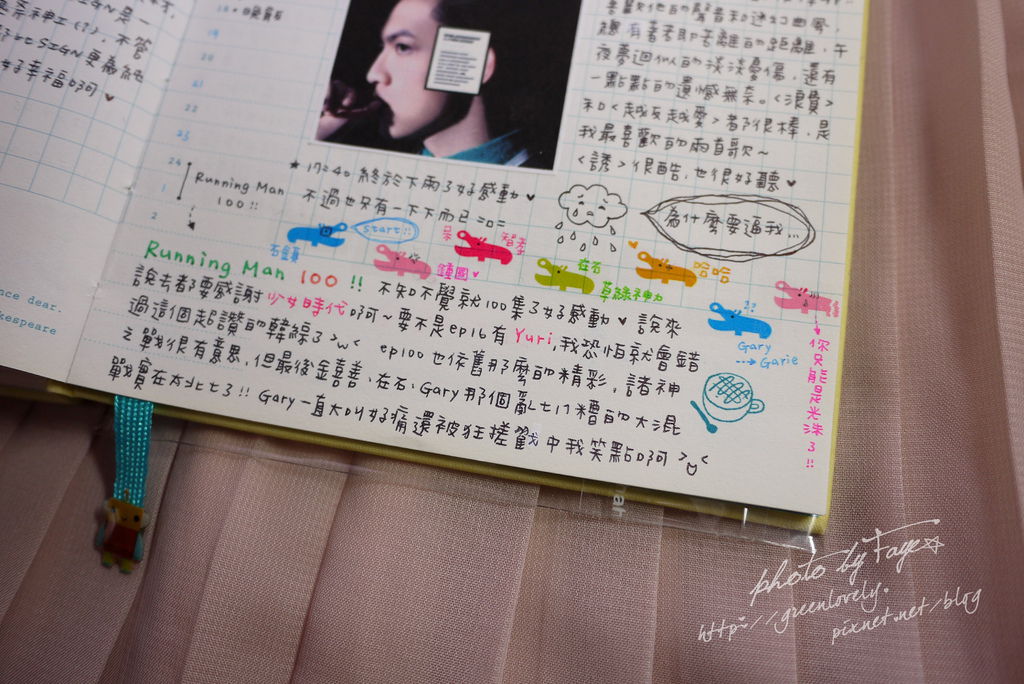 SIGN是一
祭神工(?), 不管
好比SIGN更為純
好幸福啊♥
nce dear.
kespeare
19
20
21
22
23
24
1
2
喜歡他的聲音和迷幻曲風,
總有著若即若離的距離, 午
夜夢迴似的淡淡憂傷, 還有
一點點的遺憾無奈。<浪費>
和<越反越愛>都很棒, 是
我最喜歡的兩首歌~
<誘>很酷, 也很好聽♥
Running Man
100!!
★17:40 終於下雨了好感動♥
不過也只有一下下而已=口=
為什麼要逼我...
石鎮
Start!!
呆
智孝
鍾國♥
在石
草綠神力
哈哈
??
Gary
--→ Garie
你只能是光洙了!!
Running Man 100 !! 不知不覺就100集了好感動♥ 說來
說去都要感謝少女時代啊~要不是ep16有Yuri, 我恐怕就會錯
過這個超讚的韓綜了>w< ep100也依舊那麼的精彩, 諸神
之戰很有意思, 但最後金喜善、在石、Gary那個亂七八糟的大混
戰實在太北七了!! Gary一直大叫好痛還被狂搓戳中我笑點啊>w<
photo by Faye☆
http://greenlovely.
pixnet.net/blog